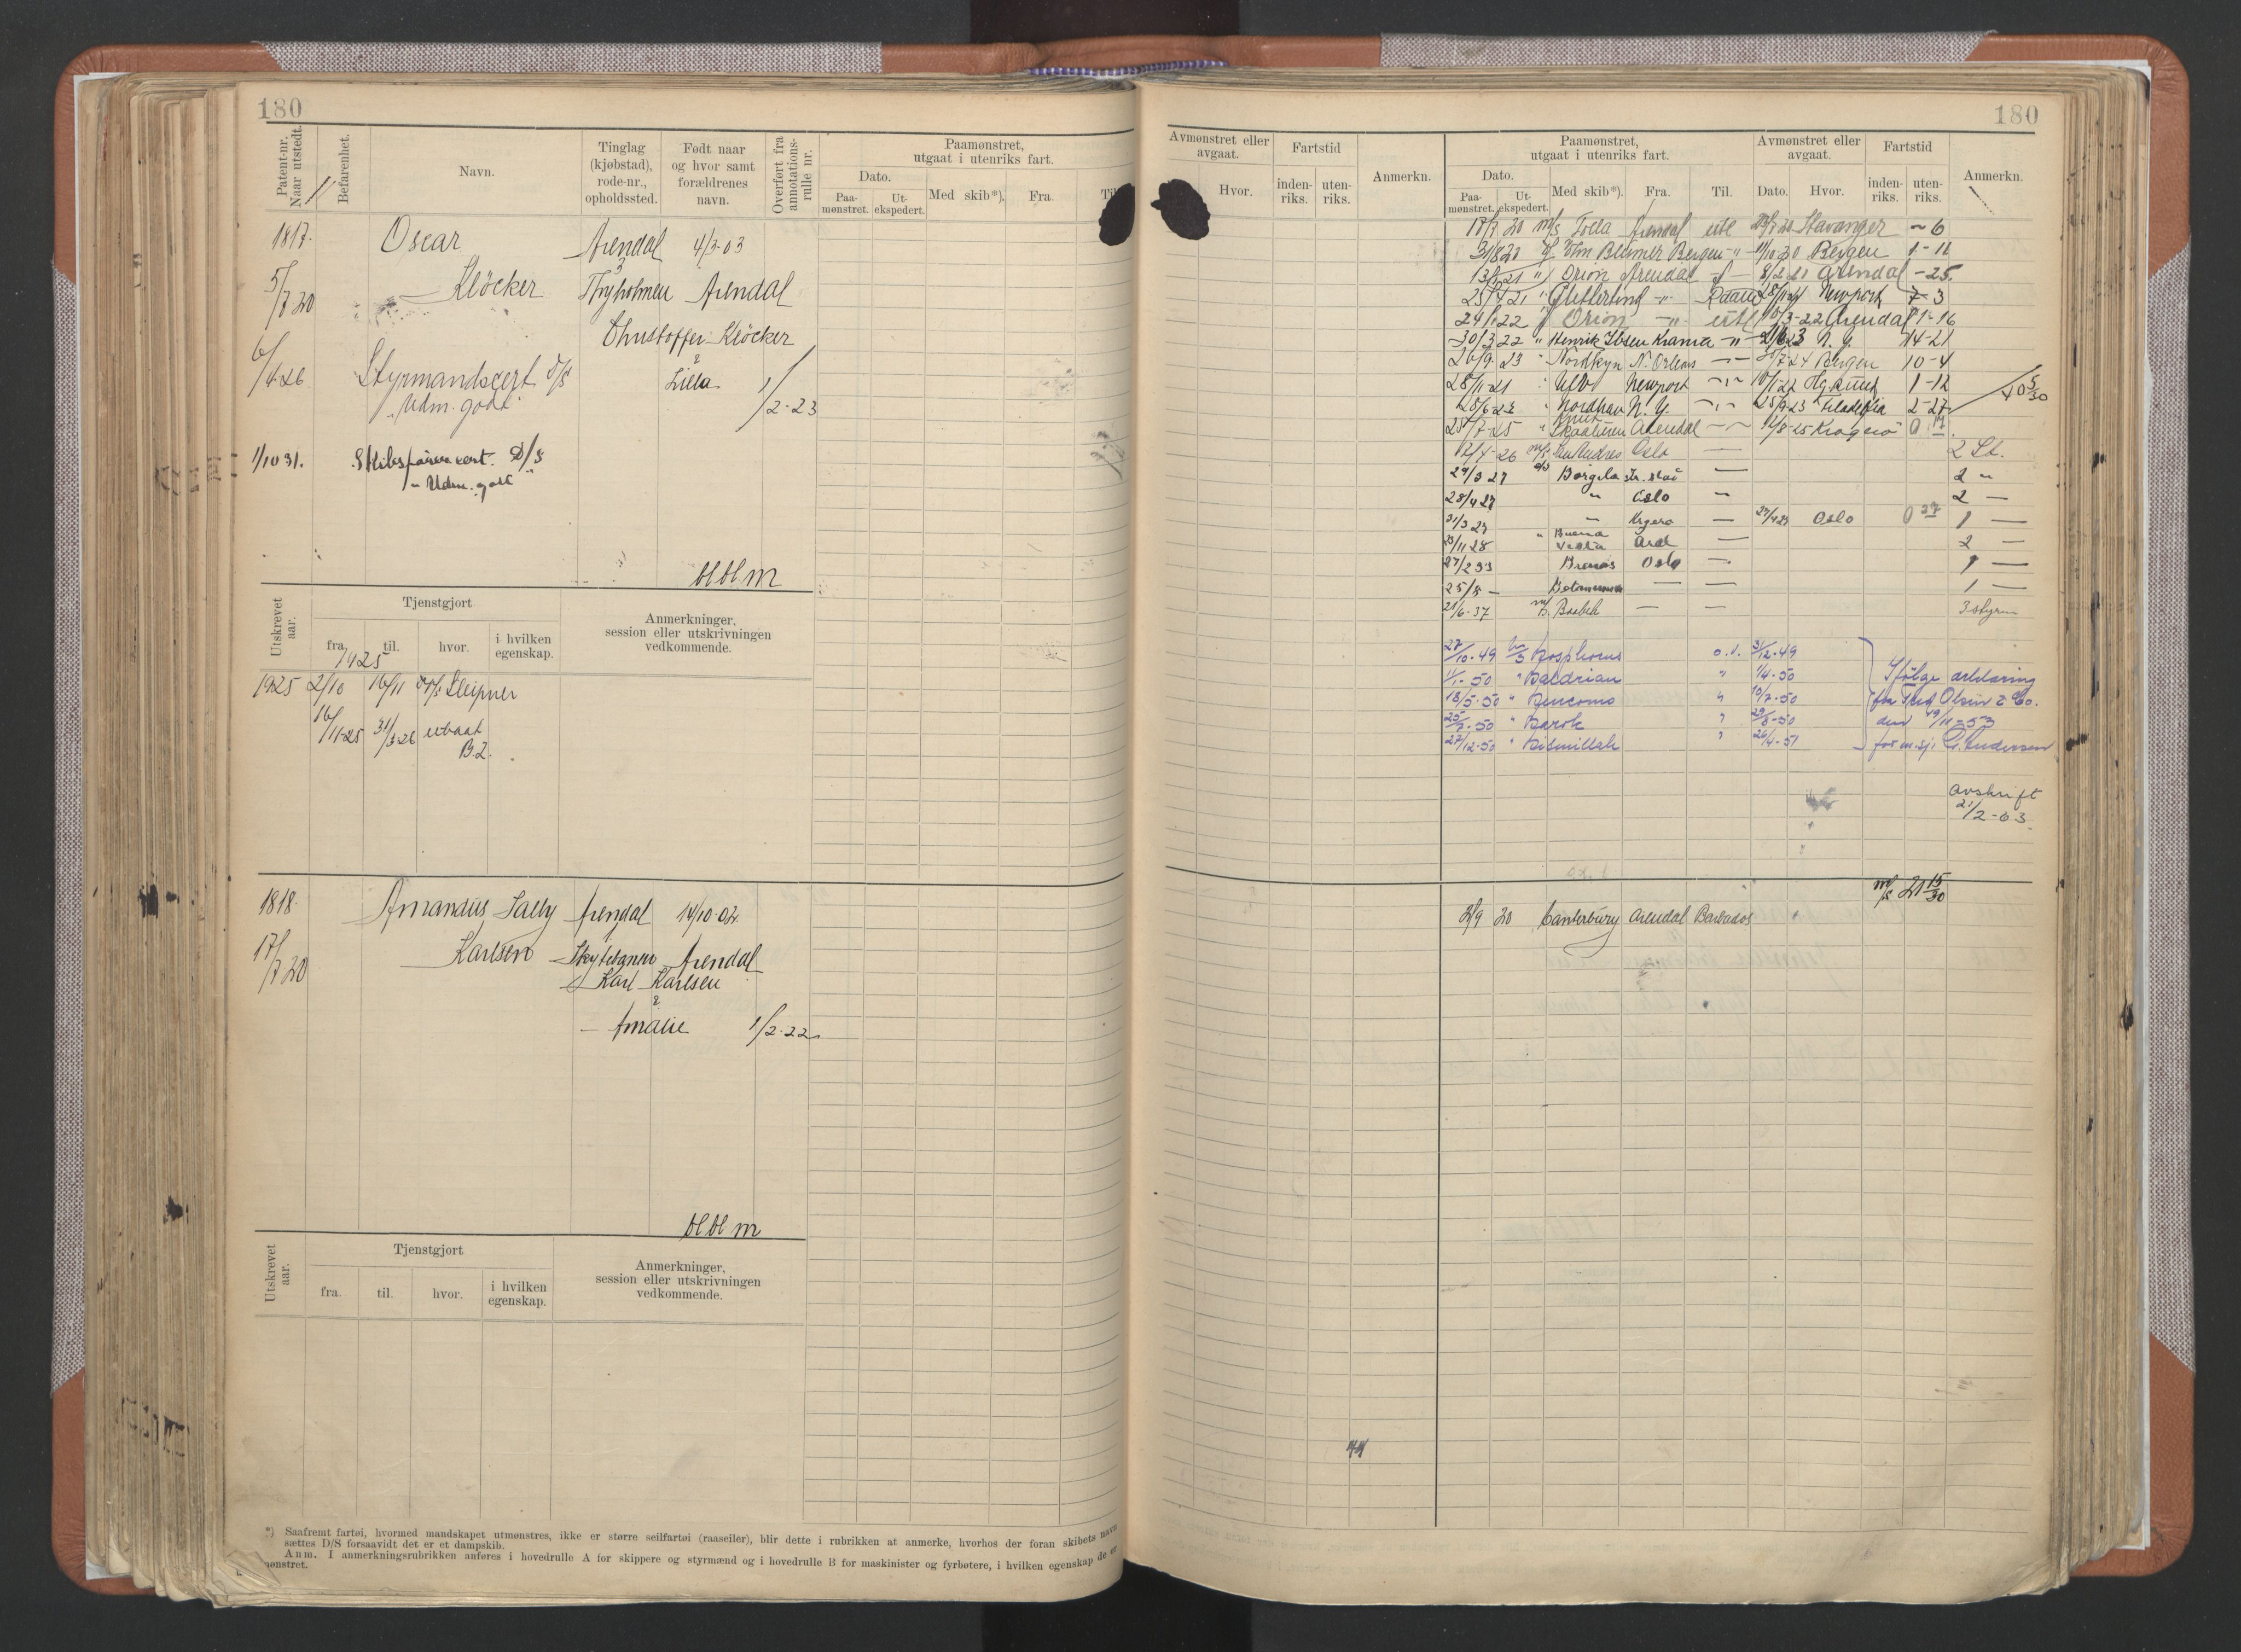 180
180
Patent-nr. Naar utstedt.
Befarenhet.
Navn.
Tinglag (kjøbstad), rode-nr., opholdssted.
Født naar og hvor samt forældrenes navn.
Overført fra annotations-rulle nr.
Paamønstret, utgaat i utenriks fart.
Dato.
Paa-mønstret.
Ut-ekspedert.
Med skib*).
Fra.
Til
Avmønstret eller avgaat.
Hvor.
Fartstid
inden-riks.
uten-riks.
Anmerkn.
Paamønstret, utgaat i utenriks fart.
Dato.
Paa-mønstret.
Ut-ekspedert.
Med skib*).
Fra.
Til.
Avmønstret eller avgaat.
Dato.
Hvor.
Fartstid
inden-riks.
uten-riks.
Anmerkn.
1817. Oscar Arendal 4/3-03
3
5/7 20 Klöcker Thyholmen Arendal
Christoffer Klöcker
&
6/4 26 Styrmandscert D/S Lilla 1/2-23
"Udm. godt"
1/10 31. Skibsførercert. D/S
"Udm. godt"
bl bl m
17/7 20 m/s Tolla Arendal utl Stavanger - 6
31/8 20 Bergen - " - Bergen 1-11
13/1 21 " Orion Arendal 8/2 21 Arendal - 25
23/4 21 " Glitterting - " - Newport 7-3
24/1 22 " Orion - " - utl 10/3-22 Arendal 1-16
30/3 22 " Henrik Ibsen Krania - " - 21/6 23 N. Y. 14-21
26/9 23 " Nordkyn N. Orleans 7-24 Bergen 10-4
28/11-21 Newport 10/1-22 1-12
28/6-23 " Nordhav N. Y. 25/9-23 Filadelfia 2-27
40 5/30
25/7-25 " Knut Skaaluren Arendal 12/8-25 Kragerø 0 17
12/4-26 m/s San Andres Oslo — 2 St.
29/3 27 d/s Borgila —
2 "
28/4 27 " Oslo " 2 —
31/3 27 — Krgerø — 27/4 27 Oslo 0 27 1 —
23/11 28 " Buena Vista Ardl — 2 —
27/2 33 Oslo — 1 —
25/8 — — — 1 —
21/6-37 m/s — — 3 styrm
27/10-49 m/s Bosphorus o.l. 3/12-49
1/1-50 " Baldrian " 1/4-50 Ifölge erklæring
18/5-50 " Bencomo " 10/7-50 fra Fred Olsen & Co.
25/7-50 " Barok " 29/8-50 den 19/11-53
27/12-50 " Bismillah " 26/4-51 for m.sj. G. Andersen
avskrift
21/2-63.
Utskrevet aar.
Tjenstgjort
fra. til. hvor. i hvilken egenskap.
Anmerkninger, session eller utskrivningen vedkommende.
1925
1925 2/10 16/11 Sleipner
16/11-25 31/3-26 ubaat
B.2.
1818. Amandus Sally Arendal 14/10-02
1
17/7 20 Karlsen Arendal
Karl Karlsen
&
Amalie 1/2-22
bl bl m
m/s 21 15/30
2/9 20 Canterbury Arendal Barbados
Utskrevet aar.
Tjenstgjort
fra. til. hvor. i hvilken egenskap.
Anmerkninger, session eller utskrivningen vedkommende.
44
*) Saafremt fartøi, hvormed mandskapet utmønstres, ikke er større seilfartøi (raaseiler), blir dette i rubrikken at anmerke, hvorhos der foran skibets navn
sættes D/S forsaavidt det er et dampskib.
Anm. I anmerkningsrubrikken anføres i hovedrulle A for skippere og styrmænd og i hovedrulle B for maskinister og fyrbøtere, i hvilken egenskap de er
mønstret.